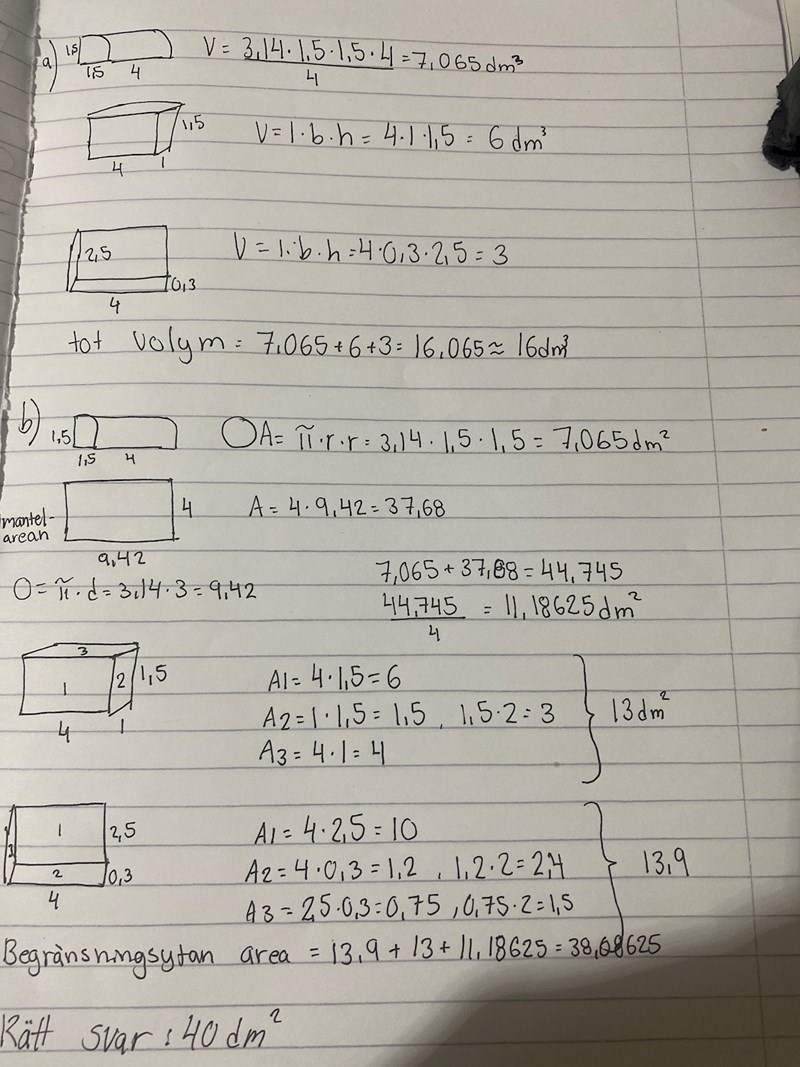 a) 1,5 1,5 4 V = 3,14·1,5·1,5·4 / 4 = 7,065 dm³
1,5 4 1 V = l·b·h = 4·1·1,5 = 6 dm³
2,5 0,3 4 V = l·b·h = 4·0,3·2,5 = 3
tot volym = 7,065+6+3 = 16,065 ≈ 16 dm³
b) 1,5 1,5 4 A = π·r·r = 3,14·1,5·1,5 = 7,065 dm²
mantel-
arean 4 9,42 A = 4·9,42 = 37,68
O = π·d = 3,14·3 = 9,42
7,065+37,68 = 44,745
44,745 / 4 = 11,18625 dm²
3 1 2 1,5 4 1
A1 = 4·1,5 = 6
A2 = 1·1,5 = 1,5 , 1,5·2 = 3 13 dm²
A3 = 4·1 = 4
1 2,5 3 2 0,3 4
A1 = 4·2,5 = 10
A2 = 4·0,3 = 1,2 , 1,2·2 = 2,4 13,9
A3 = 2,5·0,3 = 0,75 , 0,75·2 = 1,5
Begränsningsytan area = 13,9 + 13 + 11,18625 = 38,08625
Rätt svar : 40 dm²